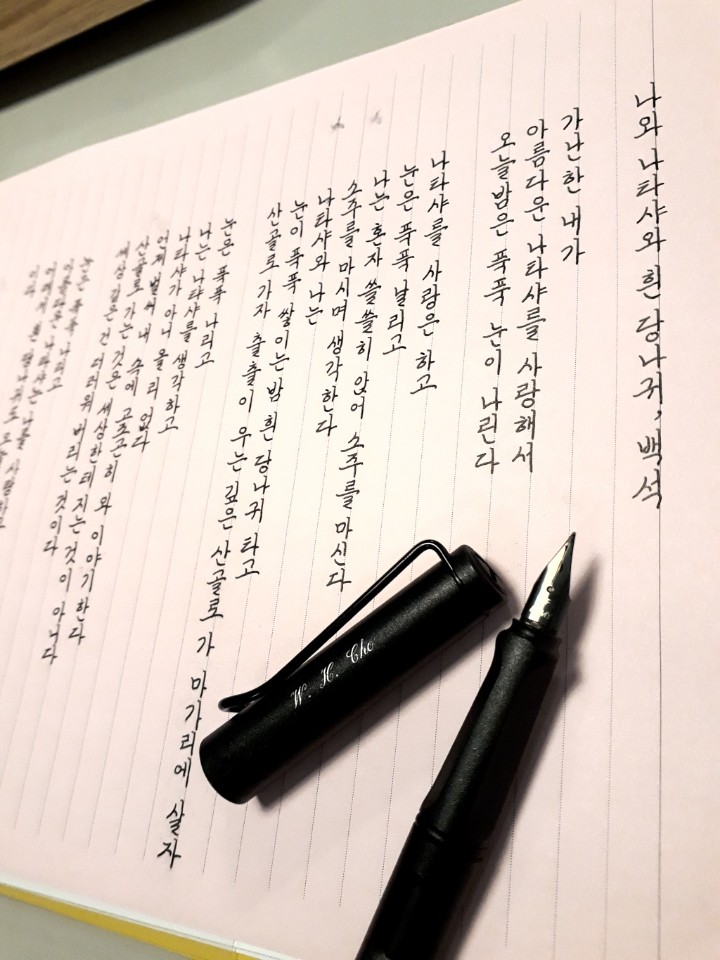 나와 나타샤와 흰 당나귀, 백석
가난한 내가
아름다운 나타샤를 사랑해서
오늘밤은 푹푹 눈이 나린다
나타샤를 사랑은 하고
눈은 푹푹 날리고
나는 혼자 쓸쓸히 앉어 소주를 마신다
소주를 마시며 생각한다
나타샤와 나는
눈이 푹푹 쌓이는밤 흰 당나귀 타고
산골로 가자 출출이 우는 깊은 산골로 가 마가리에 살자
눈은 푹푹 나리고
나는 나타샤를 생각하고
나타샤가 아니 올 리 없다
언제 벌써 내 속에 고조곤히 와 이야기한다
산골로 가는 것은 세상한테 지는것이 아니다
세상 같은 건 더러워 버리는 것이다
눈은 푹푹 나리고
아름다운 나타샤는 나를 사랑하고
흰 당나귀도 오늘
W. H. Cho